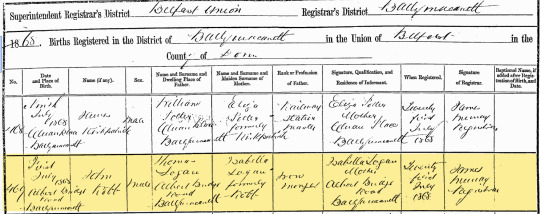 Superintendent Registrar's District Belfast Union Registrar's District Ballymacarrett
1868. Births Registered in the District of Ballymacarrett in the Union of Belfast
County of Down
No. Date and Place of Birth. Name (if any). Sex. Name and Surname and Dwelling Place of Father. Name and Surname and Maiden Surname of Mother. Rank or Profession of Father. Signature, Qualification, and Residence of Informant. When Registered. Signature of Registrar. Baptismal Name, if added after Registration of Birth, and Date.
468 July 1868 Ballymacarrett James Kirkpatrick Male William Ballymacarrett Eliza formerly Kirkpatrick Railway Station Master Eliza Mother Ballymacarrett Twenty first July 1868 James Murray Registrar
469 First July 1868 Albert Bridge Road Ballymacarrett John Robb Male Thomas Logan Albert Bridge Road Ballymacarrett Isabella Logan formerly Robb Iron Isabella Logan Mother Albert Bridge Road Ballymacarrett Twenty first July 1868 James Murray Registrar